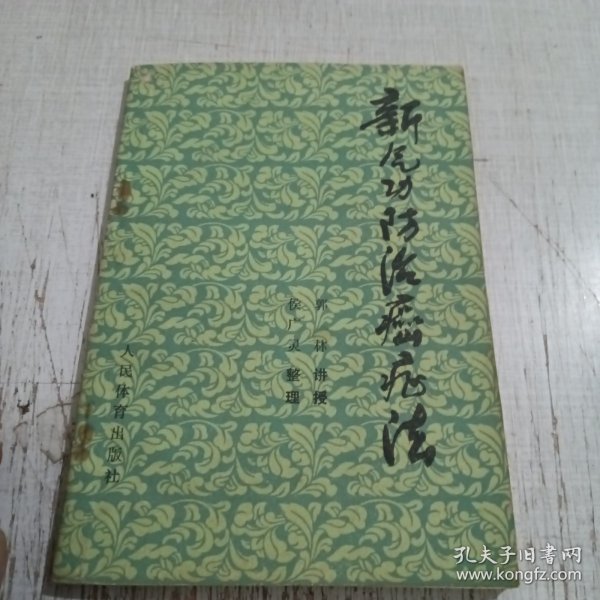 新气功防治癌症法
郭林讲授
侯广灵整理
人民体育出版社
孔夫子旧书网
www.kongfz.com